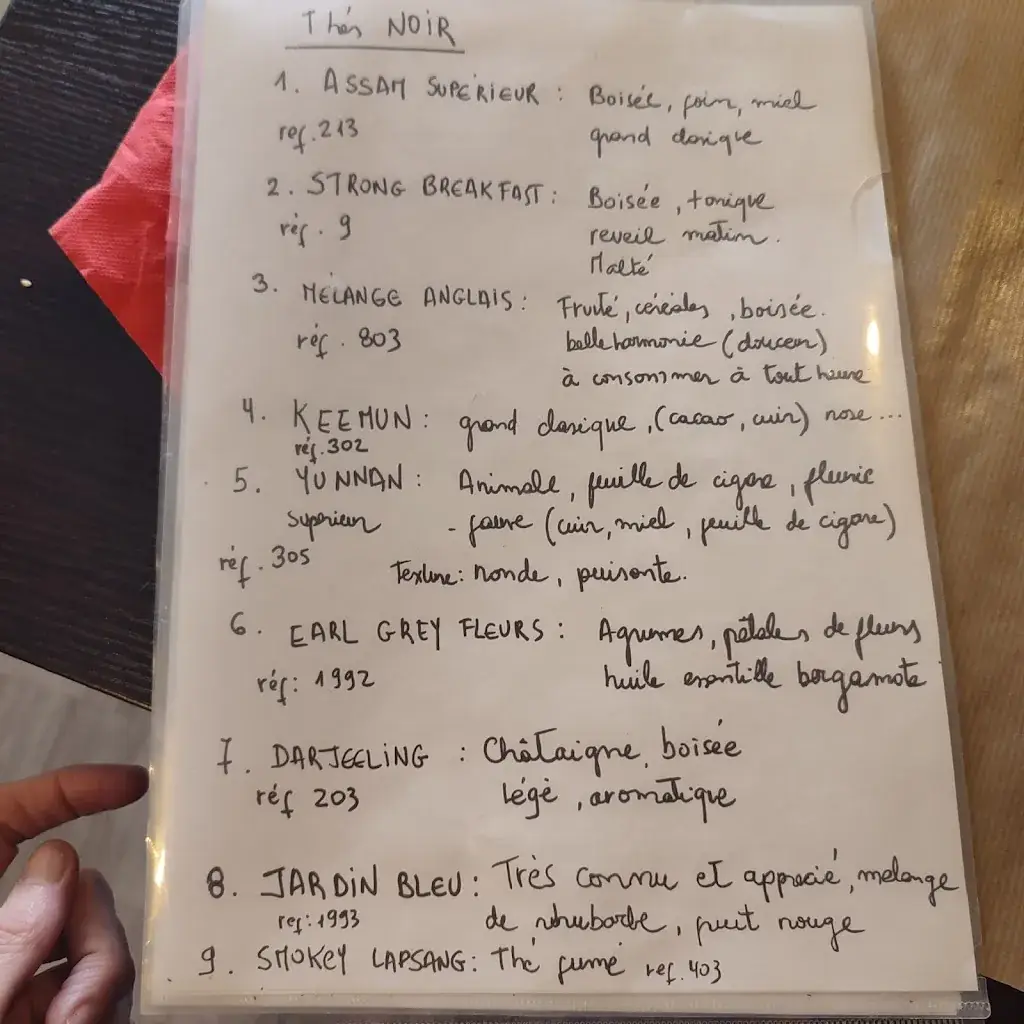 Thés NOIR
1. ASSAM SUPERIEUR : Boisée, foin, miel
ref.213 grand classique
2. STRONG BREAKFAST : Boisée, tonique
réf. 9 reveil matin.
Malté
3. MÉLANGE ANGLAIS : Fruité, céréales, boisée.
réf. 803 belle harmonie (douceur)
à consommer à tout heure
4. KEEMUN : grand classique, (cacao, cuir) rose ...
réf.302
5. YUNNAN : Animale, feuille de cigare, fleurie
Superieur - fauve (cuir, miel, feuille de cigare)
réf. 305
Texture: ronde, puisante.
6. EARL GREY FLEURS : Agrumes, pétales de fleurs
réf: 1992 huile essentille bergamote
7. DARJEELING : Châtaigne, boisée
réf 203 légè, aromatique
8. JARDIN BLEU : Très connu et apprecié, melange
ref:1993 de rhubarbe, fruit rouge
9. SMOKEY LAPSANG: Thé fumé ref.403